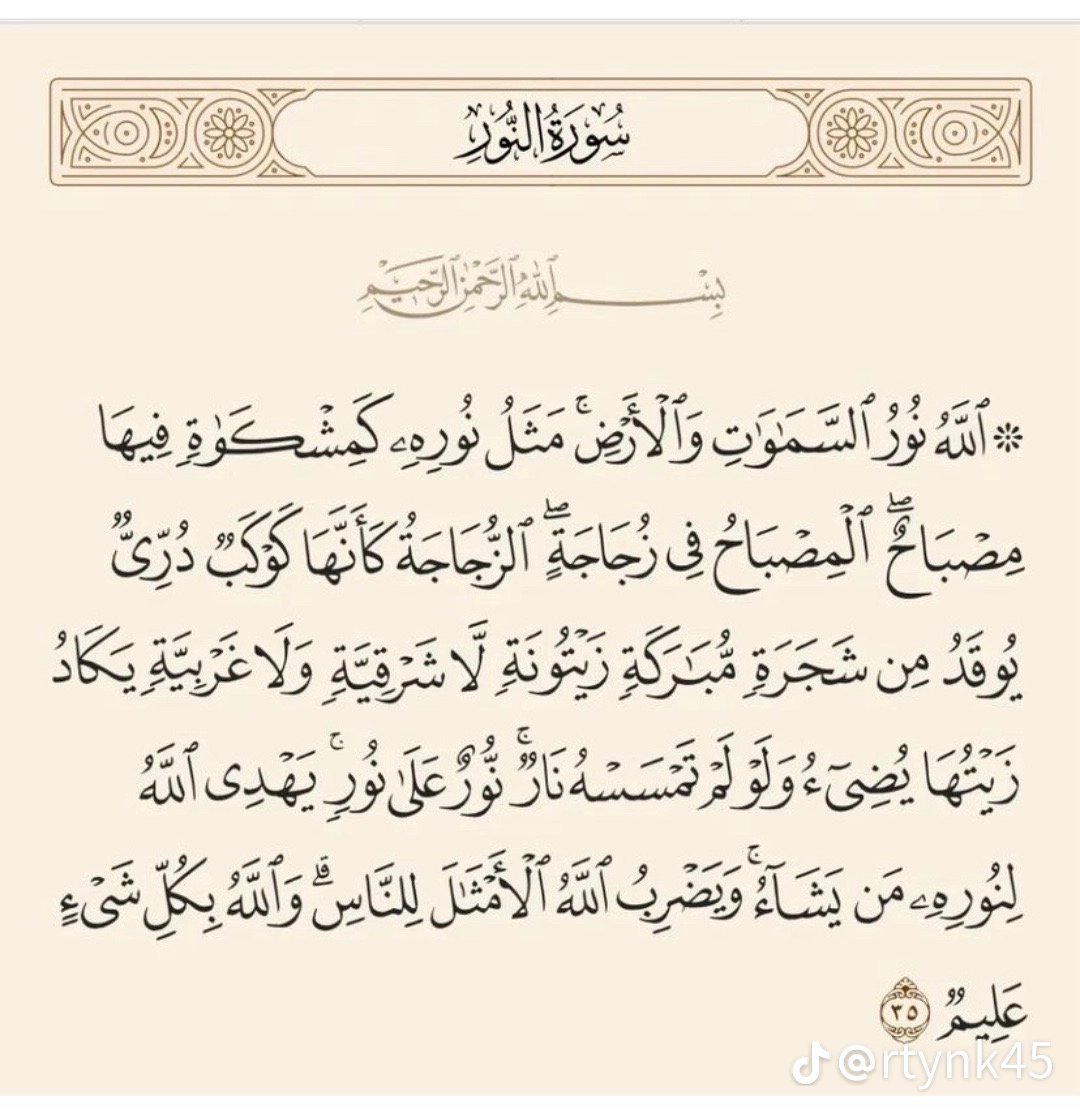 سُورَةُ النُّورِ
بِسْمِ ٱللَّهِ ٱلرَّحْمَٰنِ ٱلرَّحِيمِ
۞ ٱللَّهُ نُورُ ٱلسَّمَٰوَٰتِ وَٱلْأَرْضِۚ مَثَلُ نُورِهِۦ كَمِشْكَوٰةٍ فِيهَا
مِصْبَاحٌۖ ٱلْمِصْبَاحُ فِى زُجَاجَةٍۖ ٱلزُّجَاجَةُ كَأَنَّهَا كَوْكَبٌ دُرِّىٌّ
يُوقَدُ مِن شَجَرَةٍ مُّبَٰرَكَةٍ زَيْتُونَةٍ لَّا شَرْقِيَّةٍ وَلَا غَرْبِيَّةٍ يَكَادُ
زَيْتُهَا يُضِىٓءُ وَلَوْ لَمْ تَمْسَسْهُ نَارٌۚ نُّورٌ عَلَىٰ نُورٍۚ يَهْدِى ٱللَّهُ
لِنُورِهِۦ مَن يَشَآءُۚ وَيَضْرِبُ ٱللَّهُ ٱلْأَمْثَٰلَ لِلنَّاسِۗ وَٱللَّهُ بِكُلِّ شَىْءٍ
عَلِيمٌ ٣٥
@rtynk45